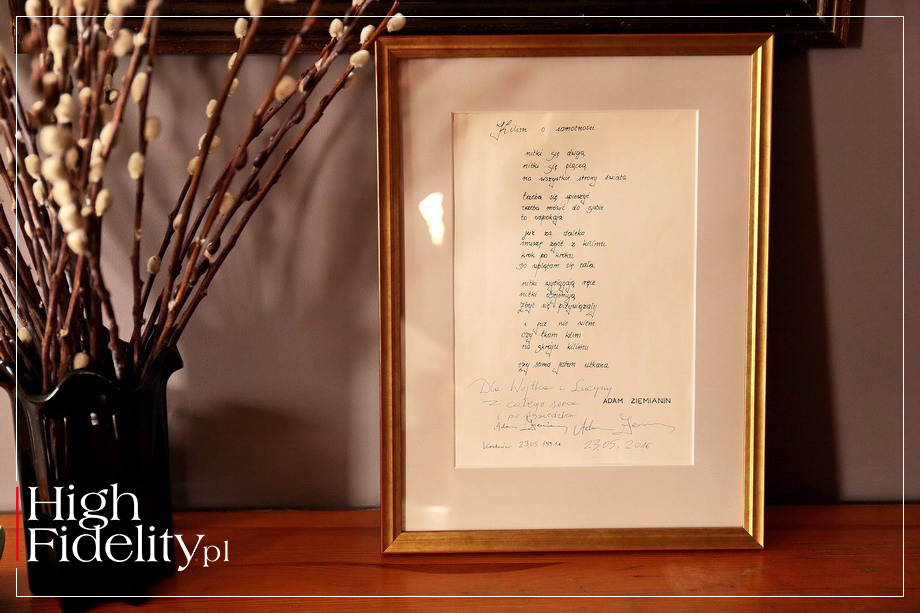 Kilim o samotności
nitki się dwoją
nitki się plączą
na wszystkie strony świata
trzeba się spieszyć
trzeba mówić do siebie
to uspokaja
już za daleko
muszę zejść z kilimu
krok po kroku
bo wplątam się cała
nitki wyciągają ręce
nitki
zbyt się przywiązały
i już nie wiem
czy tkam kilim
na skraju kilimu
czy sama jestem utkana
Dla Wojtka i Lucyny
z całego serca
ADAM ZIEMIANIN
i po
Adam Ziemianin Adam
Kraków 23.05.
23.05.2016
High
Fidelity.pl